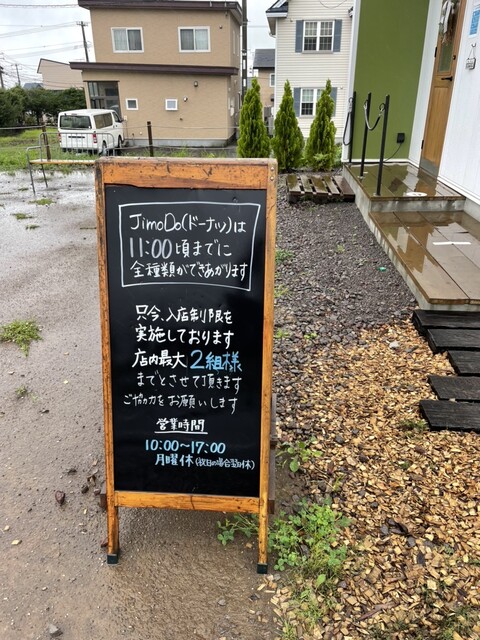 JimoDo(ドーナッツ)は
11:00頃までに
全種類ができあがります
只今、入店制限を
実施しております
店内最大2組様
までとさせて頂きます
ご協力をお願いします
営業時間
10:00〜17:00
月曜休(祝日の場合翌日休)